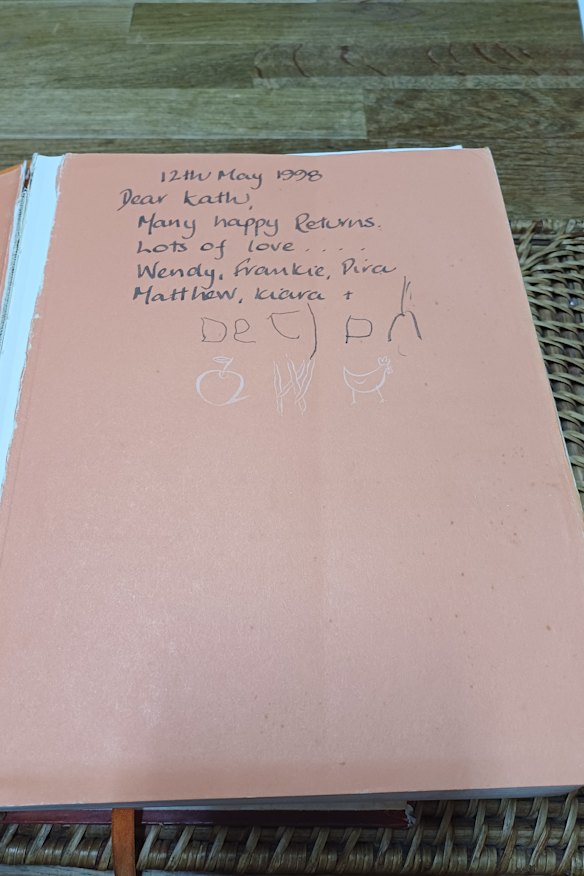 12th May 1998
Dear Kath,
Many happy Returns.
Lots of love . . . .
Wendy, Frankie, Dira
Matthew, Kiara +